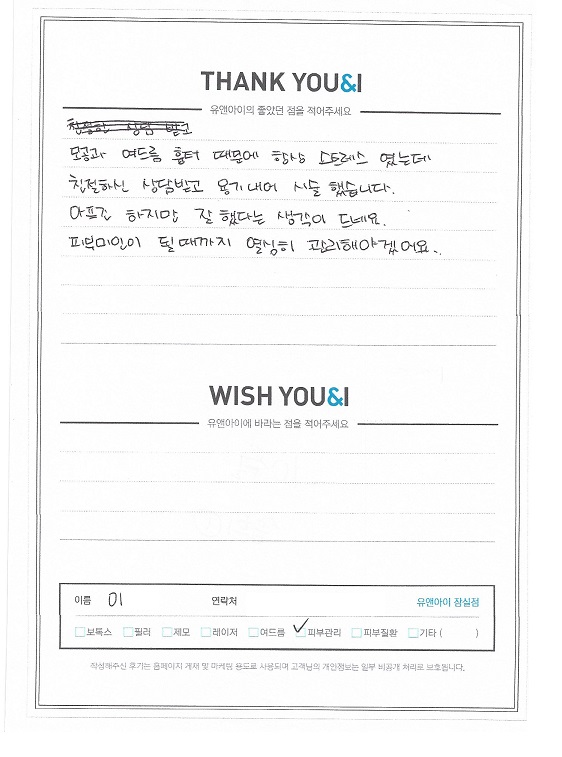 THANK YOU&I
유앤아이의 좋았던 점을 적어주세요
친절한 상담 받고
모공과 여드름 흉터 때문에 항상 스트레스 였는데
친절하신 상담받고 용기내어 시술 했습니다.
아프긴 하지만 잘 했다는 생각이 드네요.
피부미인이 될때까지 열심히 관리해야겠어요..
WISH YOU&I
유앤아이에 바라는 점을 적어주세요
이름 이 연락처 유앤아이 잠실점
보톡스 필러 제모 레이저 여드름 피부관리 피부질환 기타 ( )
작성해주신 후기는 홈페이지 게재 및 마케팅 용도로 사용되며 고객님의 개인정보는 일부 비공개 처리로 보호됩니다.